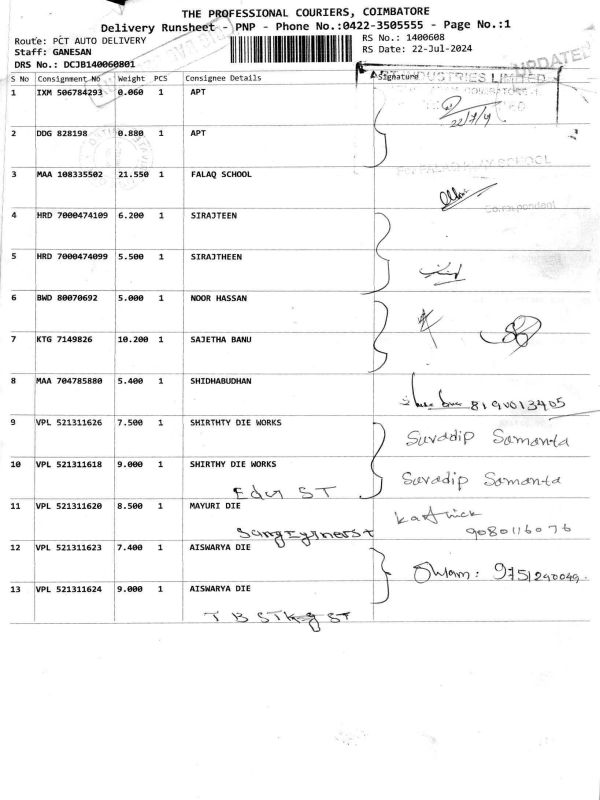 THE PROFESSIONAL COURIERS, COIMBATORE
Delivery Runsheet - PNP - Phone No.:0422-3505555 - Page No.:1
Route: PCT AUTO DELIVERY
Staff: GANESAN
DRS No.: DCJB140060801
RS No.: 1400608
RS Date: 22-Jul-2024
UPDATED
S No Consignment No Weight PCS Consignee Details Signature
INDUSTRIES LIMITED
1 IXM 506784293 0.060 1 APT
22/7/4
2 DDG 828198 0.880 1 APT
SCHOOL
3 MAA 108335502 21.550 1 FALAQ SCHOOL
Correspondent
4 HRD 7000474109 6.200 1 SIRAJTEEN
5 HRD 7000474099 5.500 1 SIRAJTHEEN
6 BWD 80070692 5.000 1 NOOR HASSAN
7 KTG 7149826 10.200 1 SAJETHA BANU
8 MAA 704785880 5.400 1 SHIDHABUDHAN
9 VPL 521311626 7.500 1 SHIRTHTY DIE WORKS Suvadip Samanta
10 VPL 521311618 9.000 1 SHIRTHY DIE WORKS Suvadip Samanta
ST
11 VPL 521311620 8.500 1 MAYURI DIE Karthick
9080116076
12 VPL 521311623 7.400 1 AISWARYA DIE
9751290049
13 VPL 521311624 9.000 1 AISWARYA DIE
T B ST